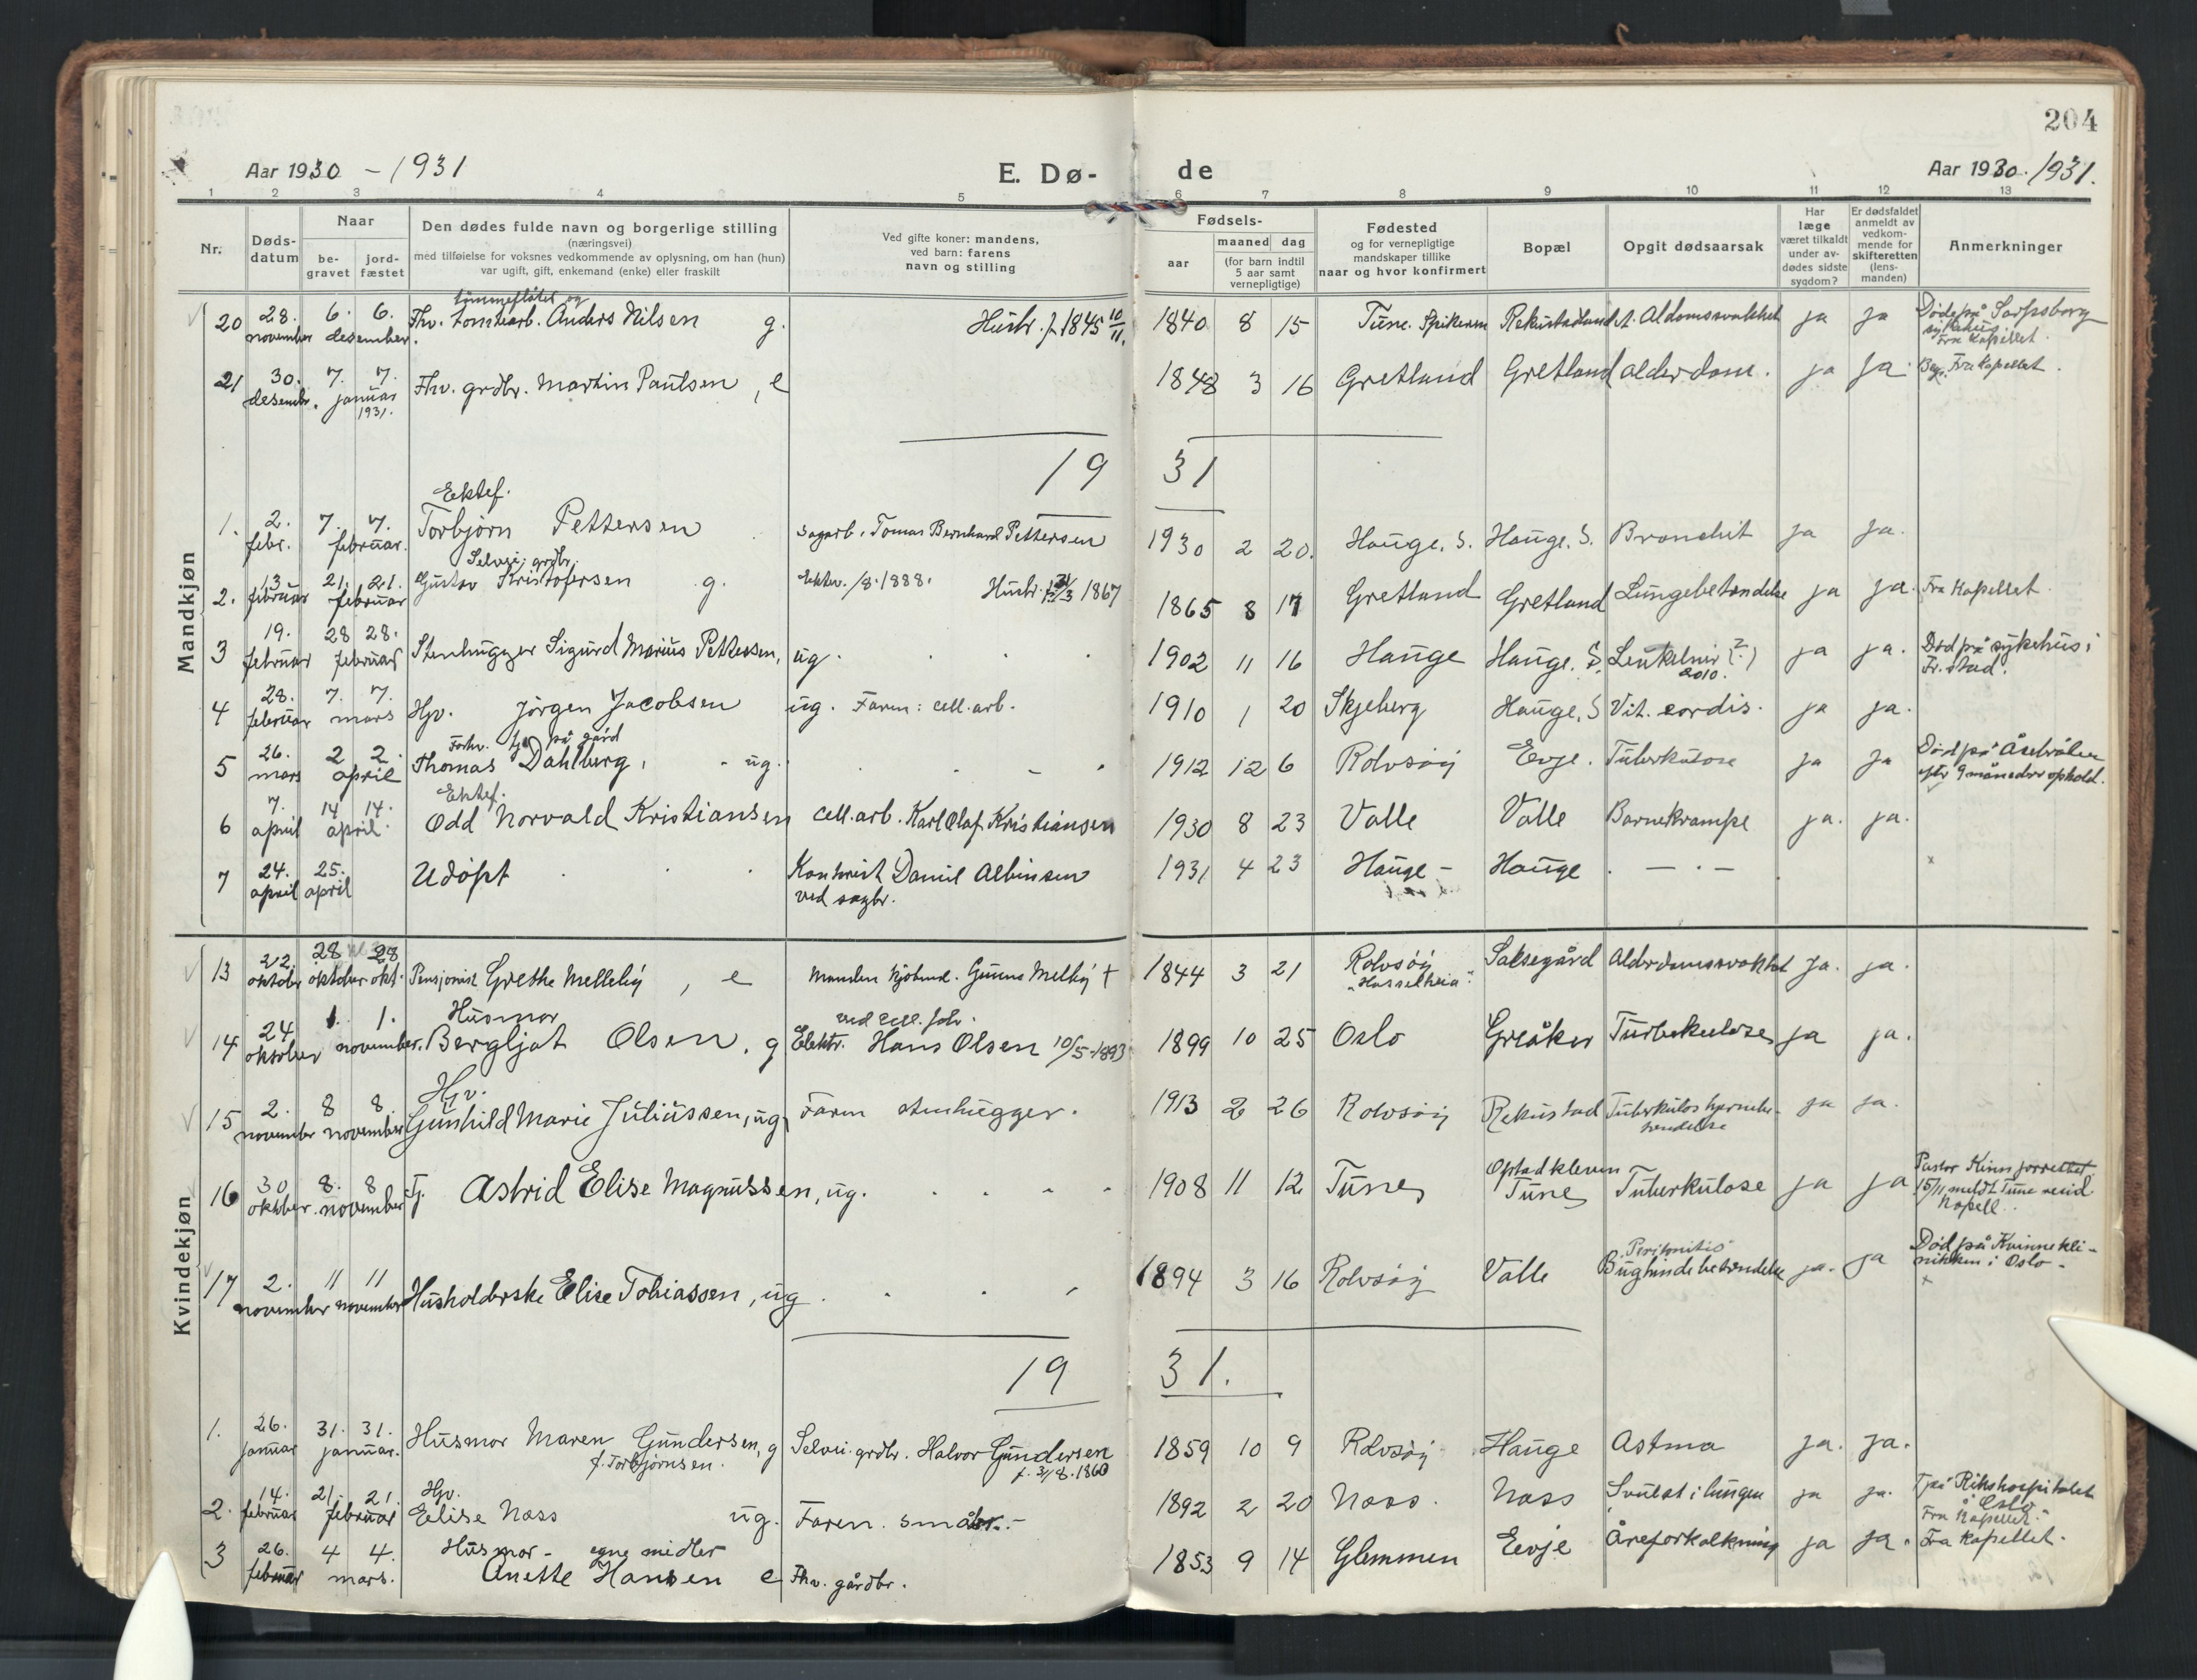 204
Aar 1930 - 1931
E. Dø- de
Aar 1930. 1931.
1 2 3 4 5 6 7 8 9 10 11 12 13
Nr.
Døds-
datum
Naar
be-
gravet
jord-
fæstet
Den dødes fulde navn og borgerlige stilling
(næringsvei)
med tilføielse for voksnes vedkommende av oplysning, om han (hun)
var ugift, gift, enkemand (enke) eller fraskilt
Ved gifte koner: mandens,
ved barn: farens
navn og stilling
Fødsels-
aar
maaned dag
(for barn indtil
5 aar samt
vernepligtige)
Fødested
og for vernepligtige
mandskaper tillike
naar og hvor konfirmert
Bopæl
Opgit dødsaarsak
Har
læge
været tilkaldt
under av-
dødes sidste
sygdom?
Er dødsfaldet
anmeldt av
vedkom-
mende for
skifteretten
(lens-
manden)
Anmerkninger
Mandkjøn
tømmerfløter og
20 28. 6. 6. Fhv. tomtearb. Anders Nilsen g. Hustr. f. 1845 10/11. 1840 8 15 Tune. Spikeren Alderdomssvakhet ja ja Døde på Sarpsborg
november desember. sykehus.
Fra Kapellet.
21 30. 7. 7. Fhv. grdbr. Martin Paulsen, e 1848 3 16 Gretland Gretland alderdom. ja ja. Beg. Fra Kapellet.
desembr. januar
1931.
19 31
Ektef.
1. 2. 7. 7. Torbjørn Pettersen sagarb. Tomas Bernhard Pettersen 1930 2 20. Hauge. S. Hauge. S. Bronchit ja ja.
febr. februar.
Selvei. grdbr.
2. 13 21. 21. Gustav Kristofersen g. Ektev. /8. 1888. Hustr. f. /3 1867 1865 8 17 Gretland Gretland Lungebetendelse ja ja. Fra Kapellet.
februar februar
3 19. 28 28. Stenhugger Sigurd Marius Pettersen, ug. 1902 11 16 Hauge Hauge. S. (?) ja ja. Død på sykehus i
februar februar Fr.stad.
4 28. 7. 7. Hjv. Jørgen Jacobsen ug. Faren: cell.arb. 1910 1 20 Skjeberg Hauge, S Vit. cordis. ja ja.
februar mars
Forhv. på gård
5 26. 2 2. Thomas Dahlberg, ug. 1912 12 6 Rolvsøy Evje. Tuberkulose ja ja Død på
mars april eftr 9 måneders ophold.
Ektef.
6 7. 14 14. Odd Norvald Kristiansen cell.arb. Karl Olaf Kristiansen 1930 8 23 Valle Valle Barnekrampe ja. ja.
april april.
7 24. 25. Udøpt Kontorist Daniel Albinsen 1931 4 23 Hauge - Hauge — . —
april april ved sagbr.
Kvindekjøn
13 22. 28 28 Pensjonist Grethe Mellebÿ, e Manden 1844 3 21 Rolvsøy Saksegård Alderdomssvakhet Ja. ja.
oktober oktober okt. "Hasselheia".
Husmor ved cell. fabr.
14 24 1. 1. Bergljot Olsen. g Elektr. Hans Olsen 10/5-1893 1899 10 25 Oslo Greåker Turbekulose ja ja.
oktober november.
Hjv.
15 2. 8 8. Gunhild Marie Juliussen, ug Faren stenhugger. 1913 2 26 Rolvsøy Rekustad Tuberkuløs hjernebe-
tendelse ja ja.
november november
16 30 8. 8 Tj. Astrid Elise Magnussen, ug. 1908 11 12 Tune, Opstadkleven
Tune, Tuberkulose ja ja Pastor Kinn forrettet.
oktober. november 15/11 meldt Tune resid.
Kapell.
17 2. 11 11 Husholderske Elise Tobiassen, ug. 1894 3 16 Rolvsøy Valle "Peritonitis"
Bughindebetendelse ja. ja Død på Kvinnekli-
november november nikken i Oslo -
19 31.
1. 26. 31. 31. Husmor Maren Gundersen, g Selvei. grdbr. Halvor Gundersen 1859 10 9 Rolvsøy Hauge Astma ja. ja.
januar januar. f. Torbjørnsen. f. 3/8. 1860
Hjv.
2. 14. 21. 21. Elise Næss ug. Faren. småbr. - 1892 2 20 Næss. Næss Svulst i lungen ja ja. † på Rikshospitalet
februar februar i Oslo.
Fra Kapellet.
Husmor - egne midler
3 26. 4 4. Anette Hansen e Fhv. gårdbr. 1853 9 14 Glemmen Evje Åreforkalkning ja ja. Fra kapellet.
februar mars.